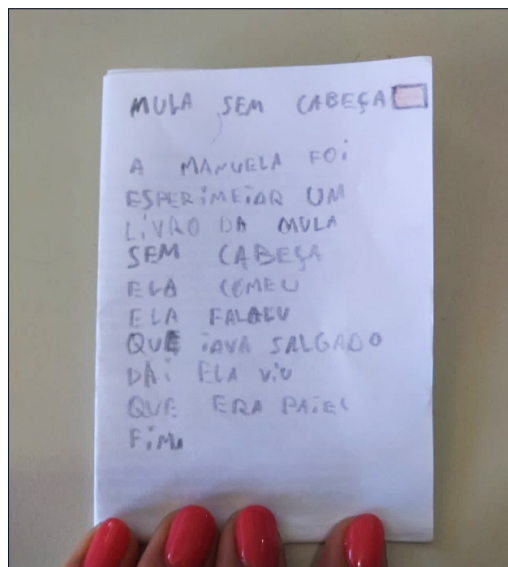 MULA SEM CABEÇA
A MANUELA FOI
ESPERIMEIAR UM
LIVRO DA MULA
SEM CABEÇA
ELA COMEU
ELA FALOLU
QUE IAVA SALGADO
DAI ELA VIU
QUE ERA PAIEL
FIM